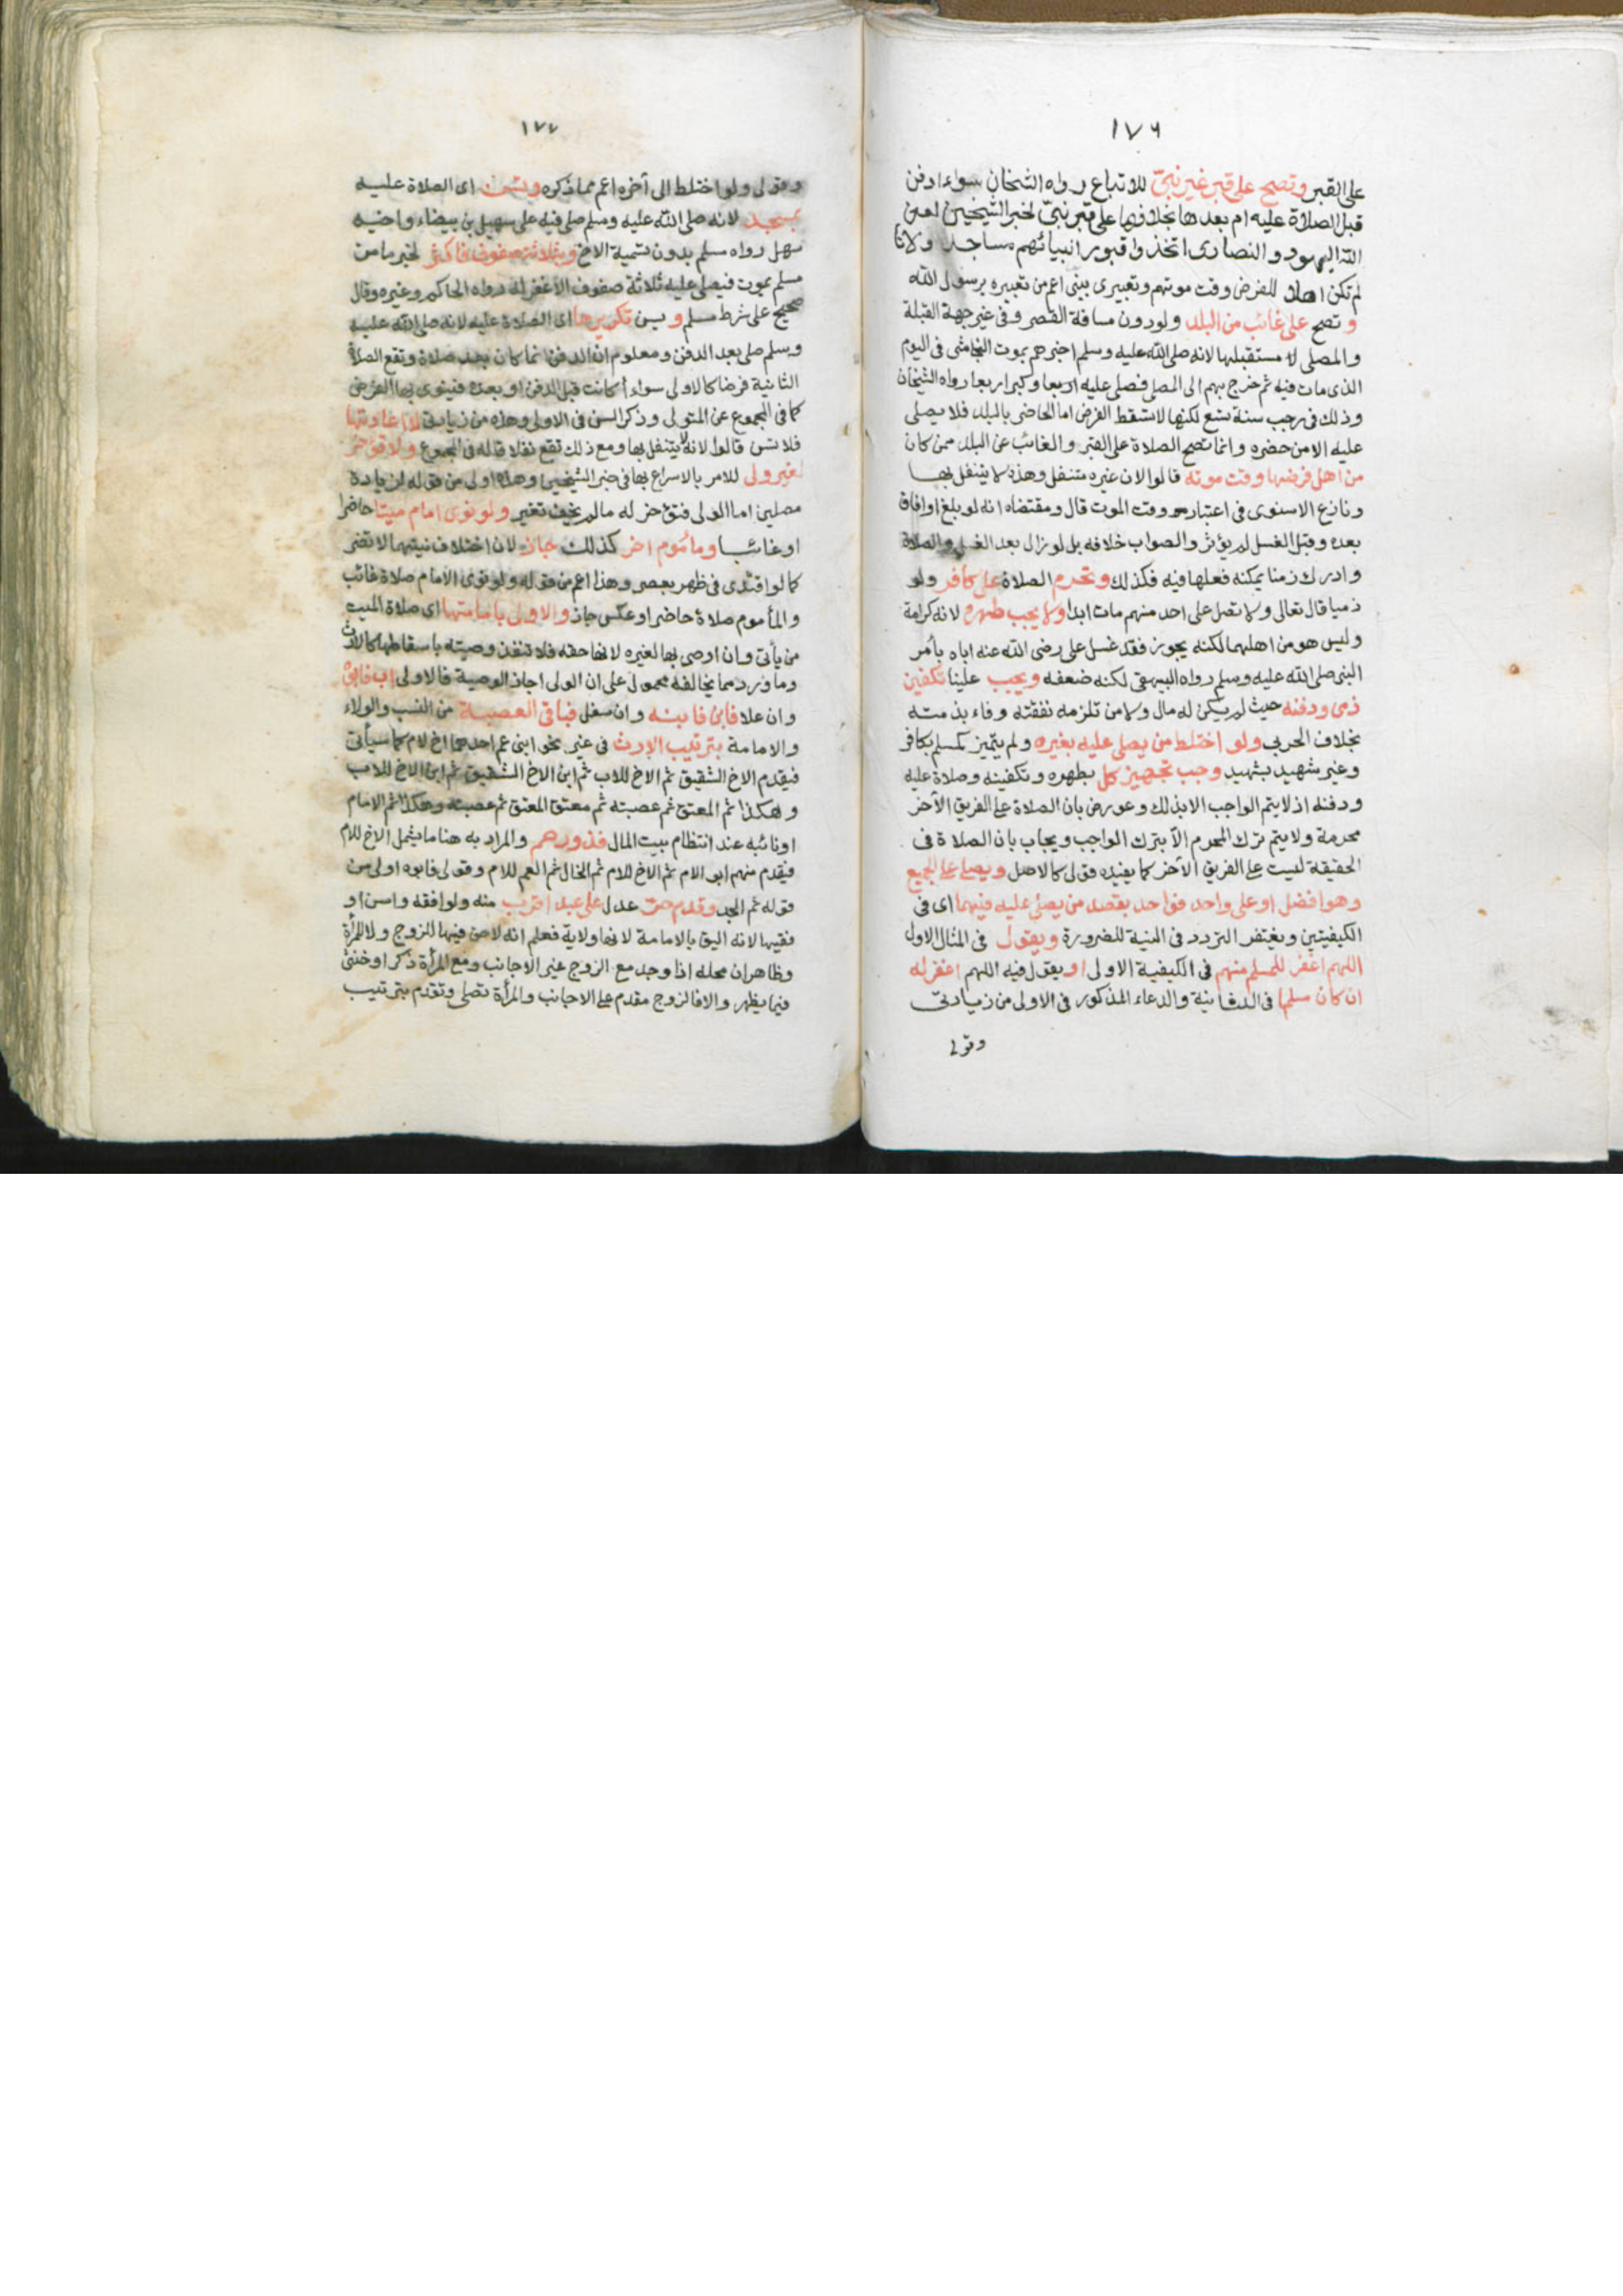 ١٧٦
على القبر وتصح على قبر غير نبيّ للاتباع رواه الشيخان سواء ادفن
قبل الصلاة عليه ام بعدها بخلافها على قبر نبيّ لخبر الشيخين لعن
الله اليهود والنصارى اتخذوا قبور انبيائهم مساجد ولانا
لم نكن اهلا للفرض وقت موتهم وتعبيرى بنبى اعم من تعبيره برسول الله
و تصح على غائب من البلد ولو دون مسافة القصر وفى غير جهة القبلة
والمصلى مستقبلها لانه صلى الله عليه وسلم اخبرهم بموت النجاشى فى اليوم
الذى مات فيه ثم خرج بهم الى المصلى فصلى عليه اربعا وكبر اربعا رواه الشيخان
وذلك فى رجب سنة تسع لكنها لا تسقط الفرض اما الحاضر بالبلد فلا يصلى
عليه الا من حضره وانما تصح الصلاة على القبر والغائب عن البلد ممن كان
من اهل فرضها وقت موته قالوا لان غيره متنفل وهذه لا يتنفل بها
ونازع الاسنوى فى اعتبار وقت الموت قال ومقتضاه انه لو بلغ او افاق
بعده وقبل الغسل لم يؤثر والصواب خلافه بل لو زال بعد الغسل والصلاة
وادرك زمنا يمكنه فعلها فيه فكذلك وتحرم الصلاة على كافر ولو
ذميا قال تعالى ولا تصل على احد منهم مات ابدا ولا يجب طهره لانه كرامة
وليس هو من اهلها لكنه يجوز فقد غسل على رضى الله عنه اباه بأمر
النبى صلى الله عليه وسلم رواه البيهقى لكنه ضعفه ويجب علينا تكفين
ذمى ودفنه حيث لم يكن له مال ولا من تلزمه نفقته وفاء بذمته
بخلاف الحربى ولو اختلط من يصلى عليه بغيره ولم يتميز كمسلم بكافر
وغير شهيد بشهيد وجب تجهيز كل بطهره وتكفينه وصلاة عليه
ودفنه اذ لا يتم الواجب الا بذلك وعورض بان الصلاة على الفريق الآخر
محرمة ولا يتم ترك المحرم الا بترك الواجب ويجاب بان الصلاة فى
الحقيقة ليست على الفريق الآخر كما يفيده قولى كالاصل ويصلى على الجميع
وهو افضل او على واحد فواحد بقصد من يصلى عليه فيهما اى فى
الكيفيتين ويغتفر التردد فى النية للضرورة ويقول فى المثال الاول
اللهم اغفر للمسلم منهم فى الكيفية الاولى او يقول فيه اللهم اغفر له
ان كان مسلما فى الثانية والدعاء المذكور فى الاولى من زيادتى
وقولى
١٧٧
وقولى ولو اختلط الى آخره اعم مما ذكره وتسن اى الصلاة عليه
بمسجد لانه صلى الله عليه وسلم صلى فيه على سهيل بن بيضاء واخيه
سهل رواه مسلم بدون تسمية الاخ وبثلاثة صفوف فاكثر لخبر ما من
مسلم يموت فيصلى عليه ثلاثة صفوف الا غفر له رواه الحاكم وغيره وقال
صحيح على شرط مسلم و يسن تكريرها اى الصلاة عليه لانه صلى الله عليه
وسلم صلى بعد الدفن ومعلوم ان الدفن انما كان بعد صلاة وتقع الصلاة
الثانية فرضا كالاولى سواء أكانت قبل الدفن او بعده فينوى بها الفرض
كما فى المجموع عن المتولى وذكر السن فى الاولى وهذه من زيادتى لا اعادتها
فلا تسن قالوا لانه لا يتنفل بها ومع ذلك تقع نفلا قاله فى المجموع ولا تؤخر
لغير ولى للامر بالاسراع بها فى خبر الشيخين وهذا اولى من قوله لزيادة
مصلين اما الولى فتؤخر له ما لم يخف تغير ولو نوى امام ميتا حاضرا
او غائبا ومأموم آخر كذلك جاز لان اختلاف نيتهما لا تضر
كما لو اقتدى فى ظهر بعصر وهذا اعم من قوله ولو نوى الامام صلاة غائب
والمأموم صلاة حاضر او عكس جاز والاولى بامامتها اى صلاة الميت
من يأتى وان اوصى بها لغيره لانها حقه فلا تنفذ وصيته باسقاطها كالارث
وما ورد مما يخالفه محمول على ان الولى اجاز الوصية فالاولى اب فابوه
وان علا فابن فابنه وان سفل فباقى العصبة من النسب والولاء
والامامة بترتيب الارث فى غير نحو ابنى عم احدهما اخ لام كما سيأتى
فيقدم الاخ الشقيق ثم الاخ للاب ثم ابن الاخ الشقيق ثم ابن الاخ للاب
وهكذا ثم المعتق ثم عصبته ثم معتق المعتق ثم عصبته وهكذا ثم الامام
او نائبه عند انتظام بيت المال فذو رحم والمراد به هنا ما يشمل الاخ للام
فيقدم منهم ابو الام ثم الاخ للام ثم الخال ثم العم للام وقولى فابوه اولى من
قوله ثم الجد وقدم حر عدل على عبد اقرب منه ولو افقه واسن او
فقيها لانه اليق بالامامة لانها ولاية فعلم انه لا حق فيها للزوج ولا للمرأة
وظاهر ان محله اذا وجد مع الزوج غير الاجانب ومع المرأة ذكر او خنثى
فيما يظهر والا فالزوج مقدم على الاجانب والمرأة تصلى وتقدم بترتيب